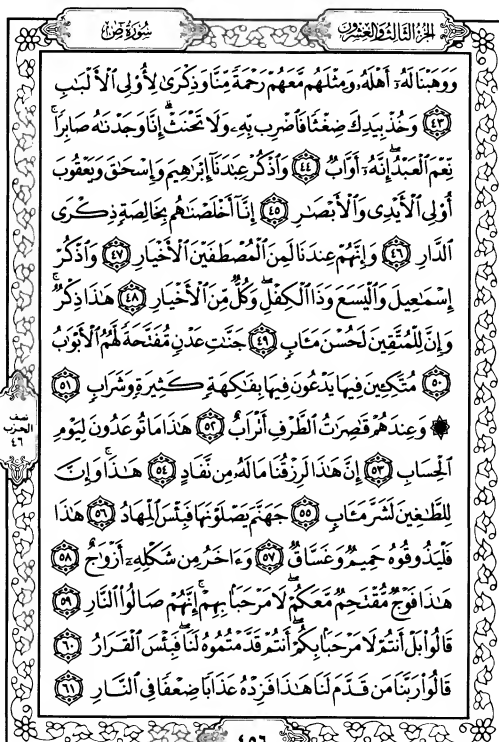 الجزء الثالث والعشرون
سورة ص
وَوَهَبْنَا لَهُۥٓ أَهْلَهُۥ وَمِثْلَهُم مَّعَهُمْ رَحْمَةً مِّنَّا وَذِكْرَىٰ لِأُو۟لِى ٱلْأَلْبَٰبِ
٤٣ وَخُذْ بِيَدِكَ ضِغْثًا فَٱضْرِب بِّهِۦ وَلَا تَحْنَثْ ۗ إِنَّا وَجَدْنَٰهُ صَابِرًا ۚ
نِّعْمَ ٱلْعَبْدُ ۖ إِنَّهُۥٓ أَوَّابٌ ٤٤ وَٱذْكُرْ عِبَٰدَنَآ إِبْرَٰهِيمَ وَإِسْحَٰقَ وَيَعْقُوبَ
أُو۟لِى ٱلْأَيْدِى وَٱلْأَبْصَٰرِ ٤٥ إِنَّآ أَخْلَصْنَٰهُم بِخَالِصَةٍ ذِكْرَى
ٱلدَّارِ ٤٦ وَإِنَّهُمْ عِندَنَا لَمِنَ ٱلْمُصْطَفَيْنَ ٱلْأَخْيَارِ ٤٧ وَٱذْكُرْ
إِسْمَٰعِيلَ وَٱلْيَسَعَ وَذَا ٱلْكِفْلِ ۖ وَكُلٌّ مِّنَ ٱلْأَخْيَارِ ٤٨ هَٰذَا ذِكْرٌ ۚ
وَإِنَّ لِلْمُتَّقِينَ لَحُسْنَ مَـَٔابٍ ٤٩ جَنَّٰتِ عَدْنٍ مُّفَتَّحَةً لَّهُمُ ٱلْأَبْوَٰبُ
٥٠ مُتَّكِـِٔينَ فِيهَا يَدْعُونَ فِيهَا بِفَٰكِهَةٍ كَثِيرَةٍ وَشَرَابٍ ٥١
۞ وَعِندَهُمْ قَٰصِرَٰتُ ٱلطَّرْفِ أَتْرَابٌ ٥٢ هَٰذَا مَا تُوعَدُونَ لِيَوْمِ
ٱلْحِسَابِ ٥٣ إِنَّ هَٰذَا لَرِزْقُنَا مَا لَهُۥ مِن نَّفَادٍ ٥٤ هَٰذَا ۚ وَإِنَّ
لِلطَّٰغِينَ لَشَرَّ مَـَٔابٍ ٥٥ جَهَنَّمَ يَصْلَوْنَهَا فَبِئْسَ ٱلْمِهَادُ ٥٦ هَٰذَا
فَلْيَذُوقُوهُ حَمِيمٌ وَغَسَّاقٌ ٥٧ وَءَاخَرُ مِن شَكْلِهِۦٓ أَزْوَٰجٌ ٥٨
هَٰذَا فَوْجٌ مُّقْتَحِمٌ مَّعَكُمْ ۖ لَا مَرْحَبًۢا بِهِمْ ۚ إِنَّهُمْ صَالُوا۟ ٱلنَّارِ ٥٩
قَالُوا۟ بَلْ أَنتُمْ لَا مَرْحَبًۢا بِكُمْ ۖ أَنتُمْ قَدَّمْتُمُوهُ لَنَا ۖ فَبِئْسَ ٱلْقَرَارُ ٦٠
قَالُوا۟ رَبَّنَا مَن قَدَّمَ لَنَا هَٰذَا فَزِدْهُ عَذَابًا ضِعْفًا فِى ٱلنَّارِ ٦١
نصف
الحزب
٤٦
٤٥٦